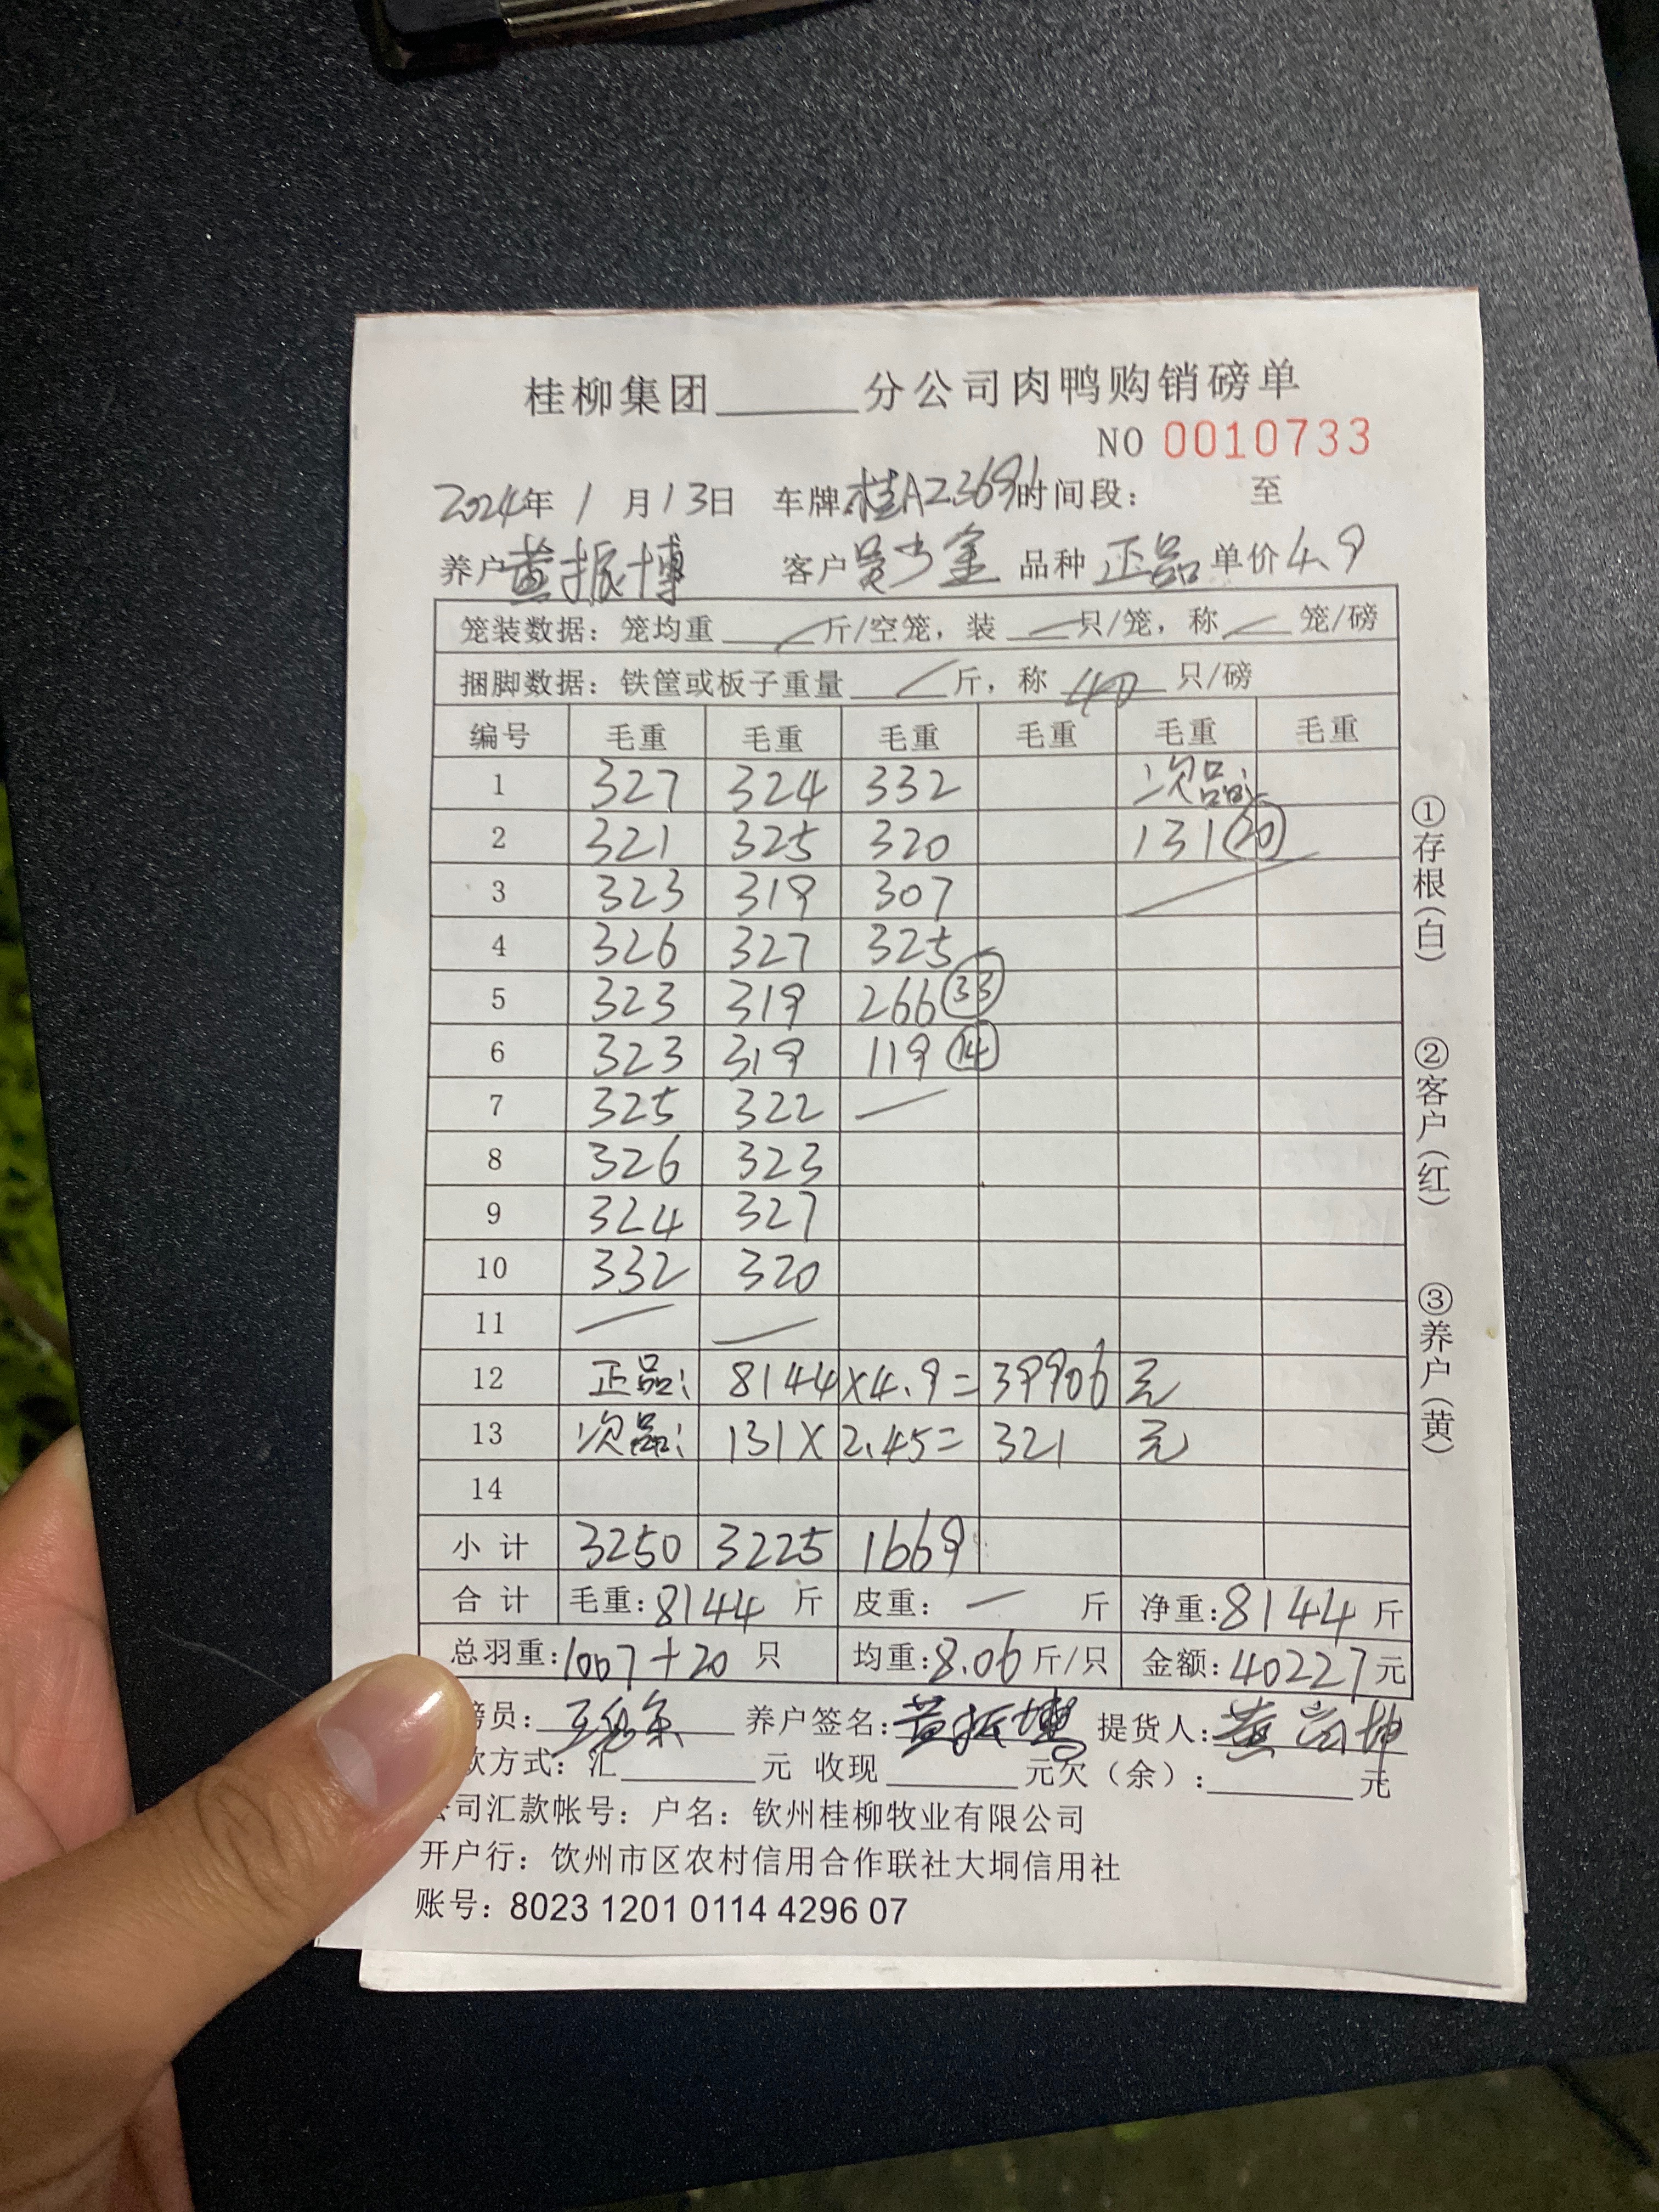 桂柳集团______分公司肉鸭购销磅单
NO 0010733
2024年 1 月13日 车牌:桂AZ3691时间段: 至
养户黄振博 客户吴少金 品种 正品 单价4.9
笼装数据：笼均重 / 斤/空笼，装 / 只/笼，称 / 笼/磅
捆脚数据：铁筐或板子重量 / 斤，称 40 只/磅
编号 毛重 毛重 毛重 毛重 毛重 毛重
1 327 324 332 次品:
2 321 325 320 131 20
3 323 319 307 /
4 326 327 325
5 323 319 266 33
6 323 319 119 14
7 325 322 /
8 326 323
9 324 327
10 332 320
11 / /
12 正品: 8144×4.9= 39906 元
13 次品: 131×2.45= 321 元
14
小计 3250 3225 1669
合计 毛重:8144 斤 皮重: / 斤 净重:8144 斤
总羽重:1007+20 只 均重:8.06斤/只 金额:40227元
磅员: 养户签名:黄振博 提货人:黄
款方式：汇______元 收现______元欠（余）:______元
公司汇款帐号：户名：钦州桂柳牧业有限公司
开户行：钦州市区农村信用合作联社大垌信用社
账号：8023 1201 0114 4296 07
①存根(白)
②客户(红)
③养户(黄)